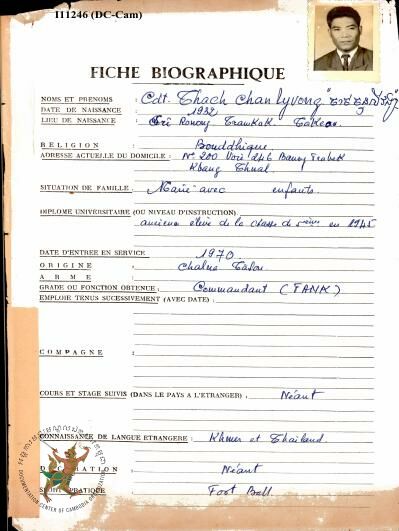 111246 (DC-Cam)
FICHE BIOGRAPHIQUE
NOMS ET PRENOMS : Cdt. Thach Chanlyvong
DATE DE NAISSANCE : 1932
LIEU DE NAISSANCE : Tramkak Takeo
RELIGION : Bouddhique
ADRESSE ACTUELLE DU DOMICILE : N° 200 Voie 246
Kbang Thual
SITUATION DE FAMILLE : Marié avec enfants
DIPLOME UNIVERSITAIRE (OU NIVEAU D'INSTRUCTION)
ancien élève de la classe de en 1945
DATE D'ENTREE EN SERVICE 1970
ORIGINE :
ARME :
GRADE OU FONCTION OBTENUE : Commandant (TANK)
EMPLOIE TENUS SUCESSIVEMENT (AVEC DATE) :
COMPAGNE :
COURS ET STAGE SUIVIS (DANS LE PAYS A L'ETRANGER) : Néant
CONNAISSANCE DE LANGUE ETRANGERE : Khmer et Thailand
Néant
PRATIQUE Foot Ball
DOCUMENTATION CENTER OF CAMBODIA